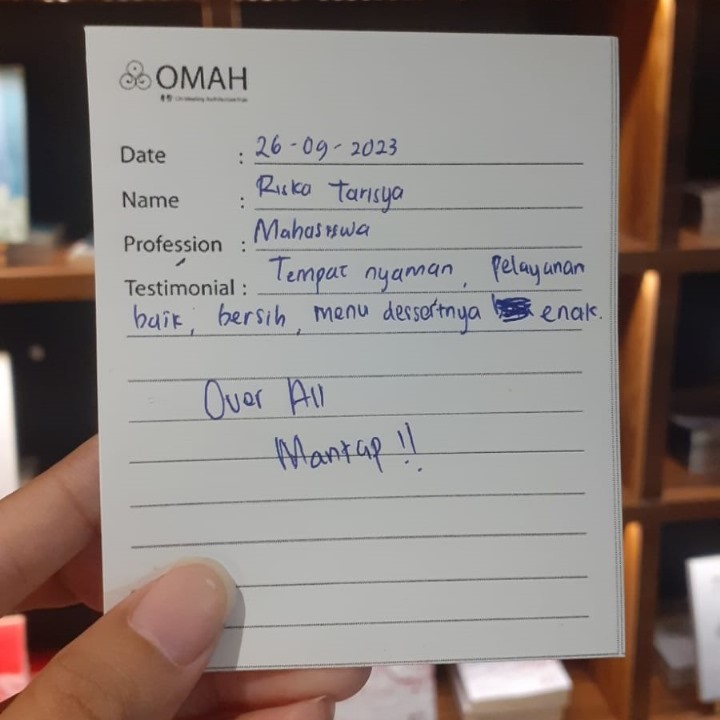 OMAH
Date : 26-09-2023
Name : Riska Tarisya
Profession : Mahasiswa
Testimonial : Tempat nyaman, Pelayanan
baik, bersih, menu dessertnya enak.
Over All
Mantap !!